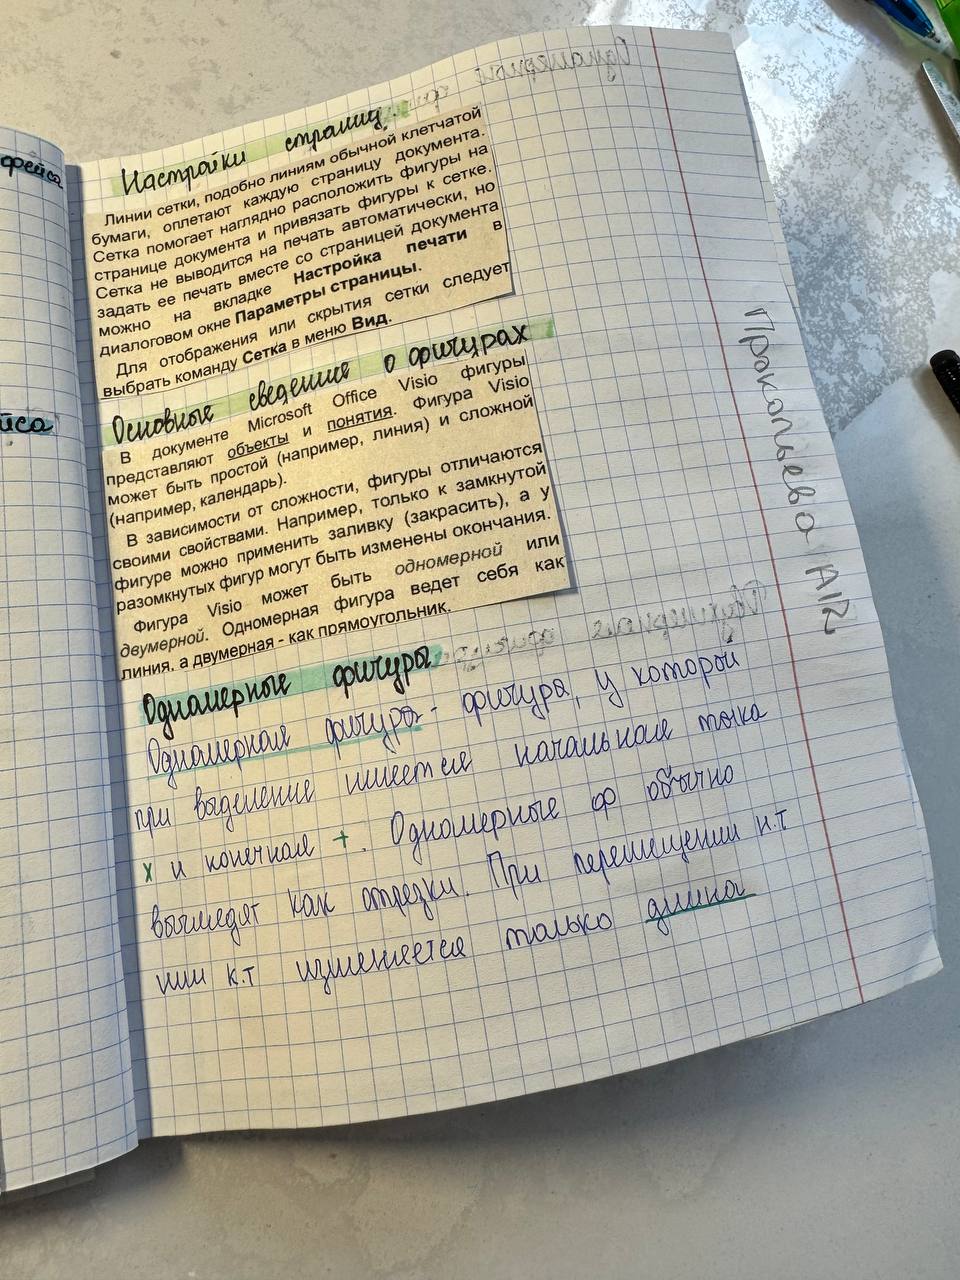 фейса
йса
Настройки страниц
Линии сетки, подобно линиям обычной клетчатой
бумаги, оплетают каждую страницу документа.
Сетка помогает наглядно расположить фигуры на
странице документа и привязать фигуры к сетке.
Сетка не выводится на печать автоматически, но
задать ее печать вместо со страницей документа
можно на вкладке Настройка печати в
диалоговом окне Параметры страницы.
Для отображения или скрытия сетки следует
выбрать команду Сетка в меню Вид.
Основные сведения о фигурах
В документе Microsoft Office Visio фигуры
представляют объекты и понятия. Фигура Visio
может быть простой (например, линия) и сложной
(например, календарь).
В зависимости от сложности, фигуры отличаются
своими свойствами. Например, только к замкнутой
фигуре можно применить заливку (закрасить), а у
разомкнутых фигур могут быть изменены окончания.
Фигура Visio может быть одномерной или
двумерной. Одномерная фигура ведет себя как
линия, а двумерная - как прямоугольник.
Одномерные фигуры
Одномерная фигура - фигура, у которой
при выделение имеется начальная точка
х и конечная +. Одномерные ф обычно
выглядят как отрезки. При перемещении н.т
или к.т изменяется только длина
Прокопьева А12